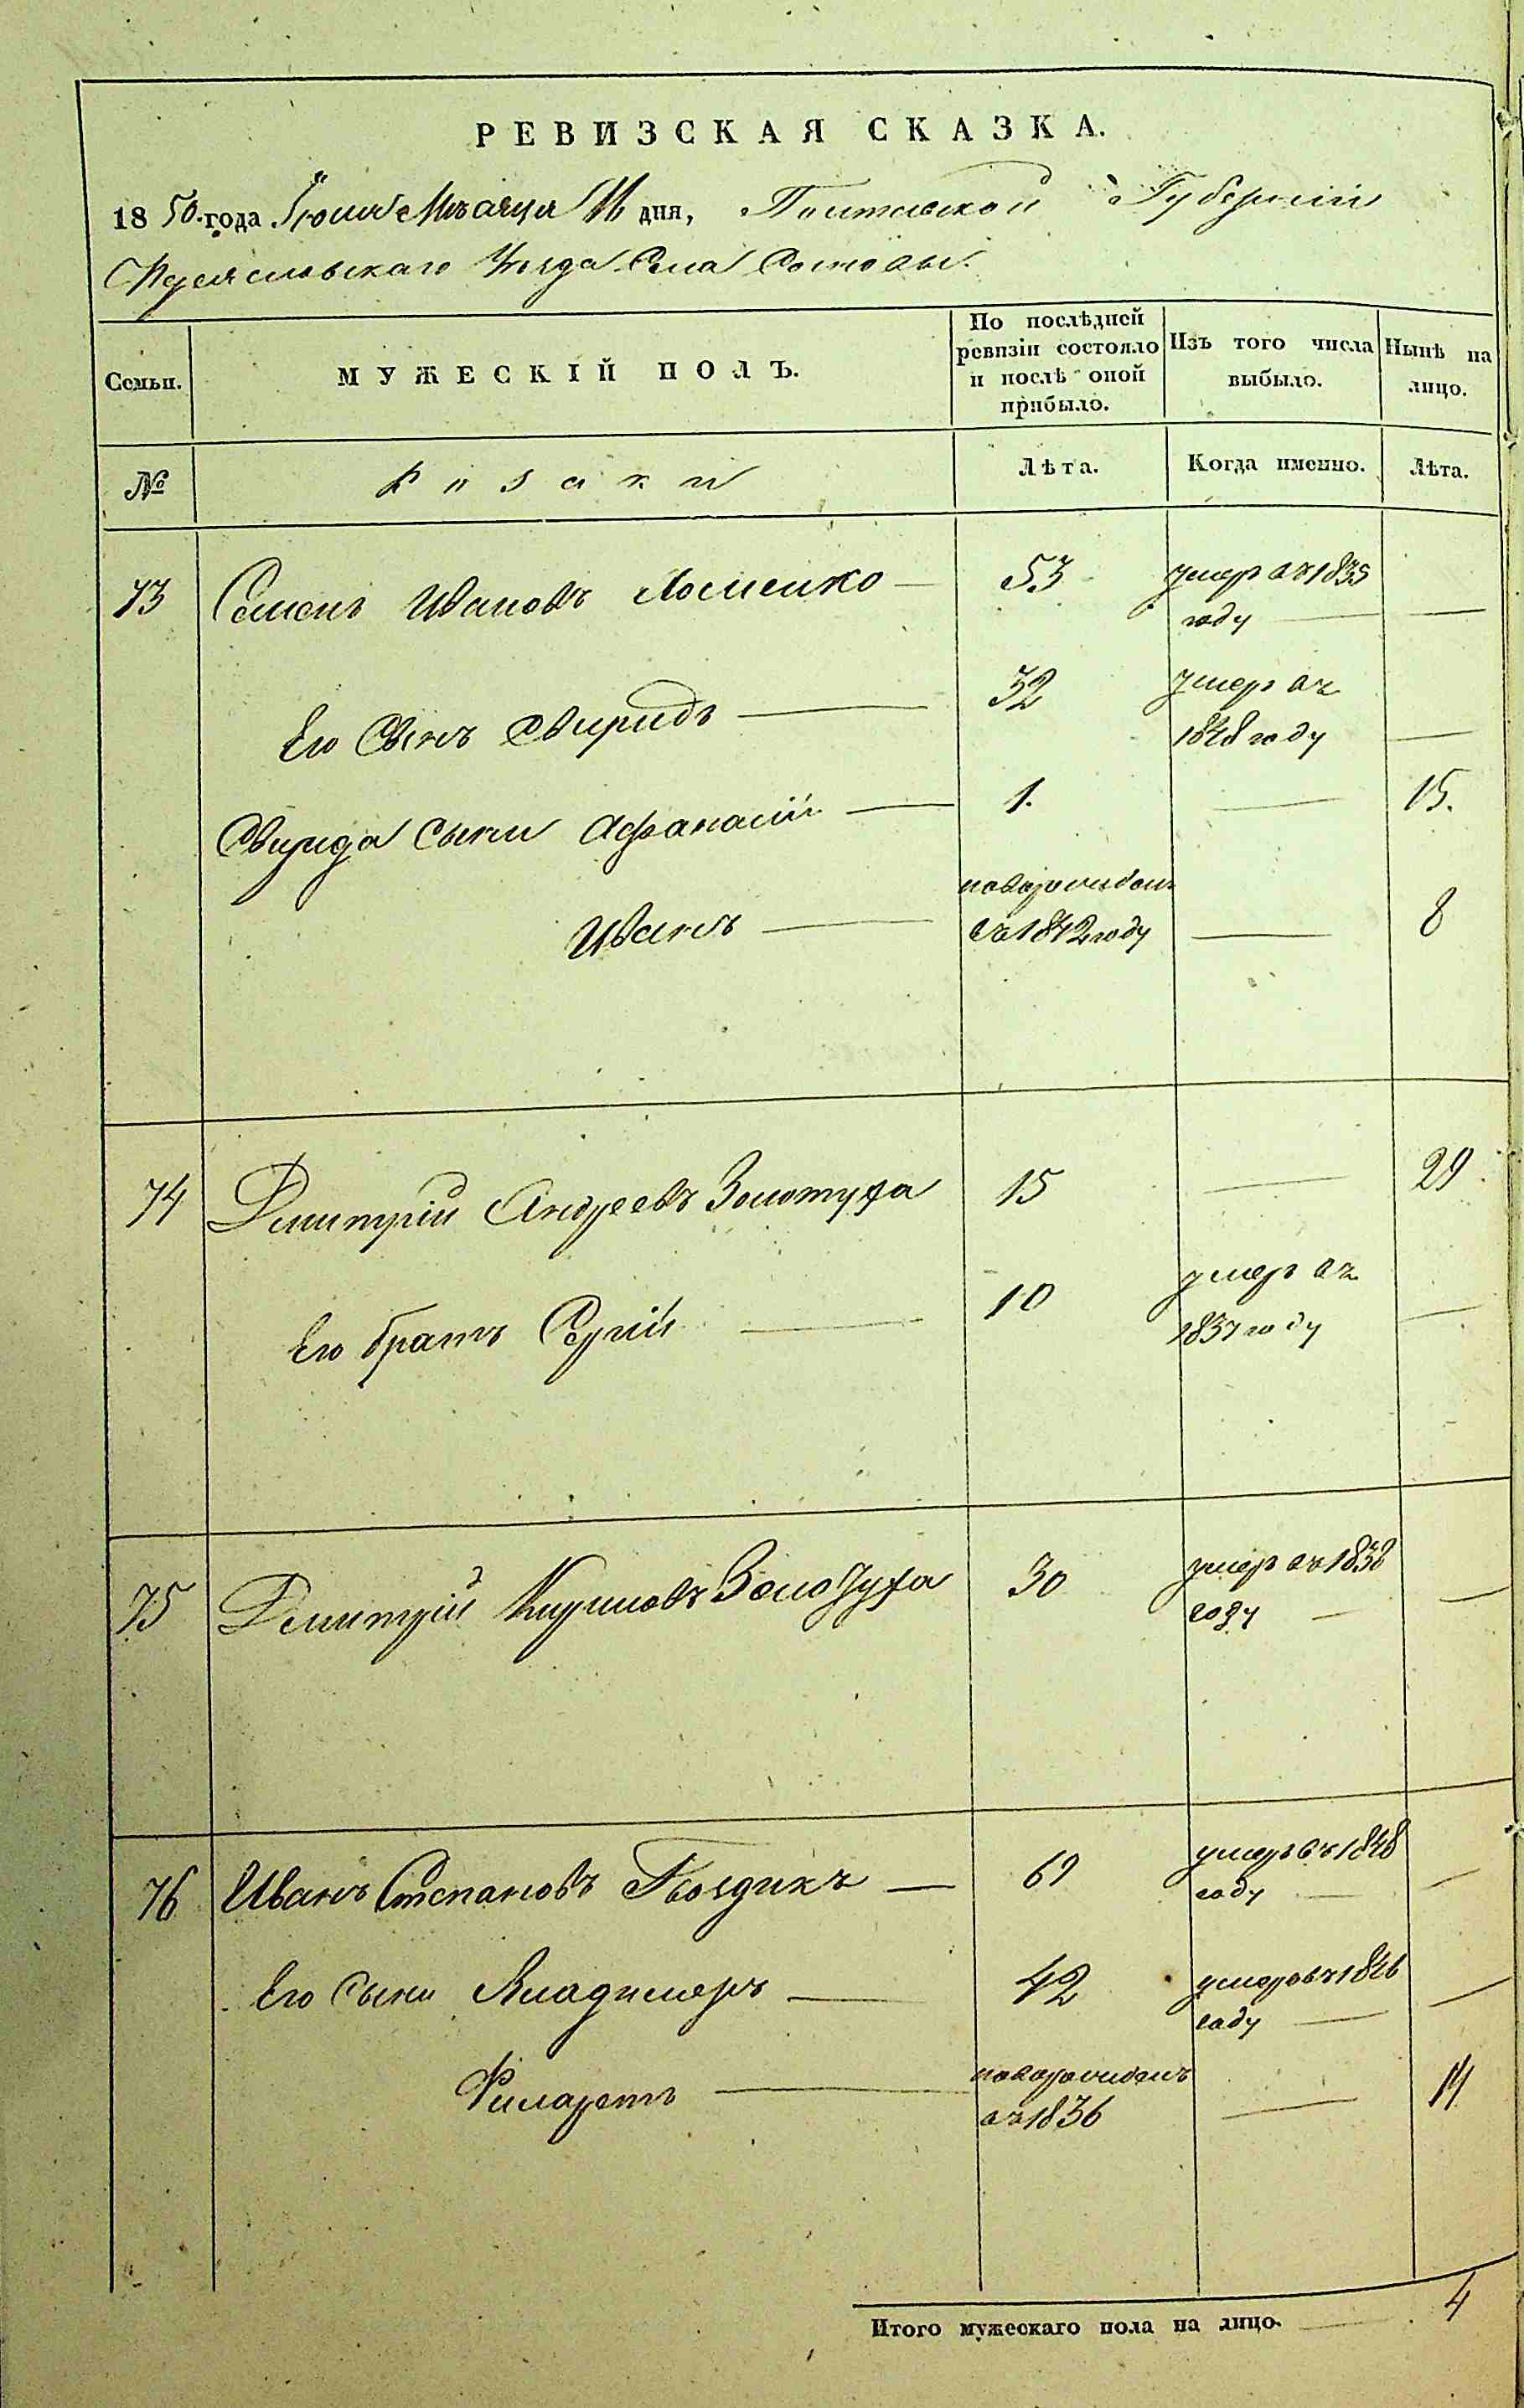 РЕВИЗСКАЯ СКАЗКА.
1850 года Іюля Мѣсяца 11 дня, Полтавской Губерніи
Переяславскаго Уѣзда Села Сосновы.
Семьи.
МУЖЕСКІЙ ПОЛЪ.
По послѣдней ревизіи состояло и послѣ оной прибыло.
Изъ того числа выбыло.
Нынѣ на лицо.
№
Козаки
Лѣта.
Когда именно.
Лѣта.
73 Семенъ Ивановъ — 53 умеръ въ 1835 году — —
Его Сынъ Свиридъ — 32 умеръ въ 1848 году —
Свирида Сыны Афанасій — 1. — 15.
Иванъ — новорожденъ въ 1842 году — 8
74 Дмитрій Андреевъ Золотуха 15 — 29
Его братъ Сергій — 10 умеръ въ 1837 году —
75 Дмитрій Кириловъ Золотуха 30 умеръ въ 1838 году — —
76 Иванъ Степановъ Гвоздикъ — 69 умеръ въ 1848 году — —
Его Сыны Владимеръ — 42 умеръ въ 1846 году — —
Филаретъ — новорожденъ въ 1836 — 14
Итого мужескаго пола на лицо. — 4